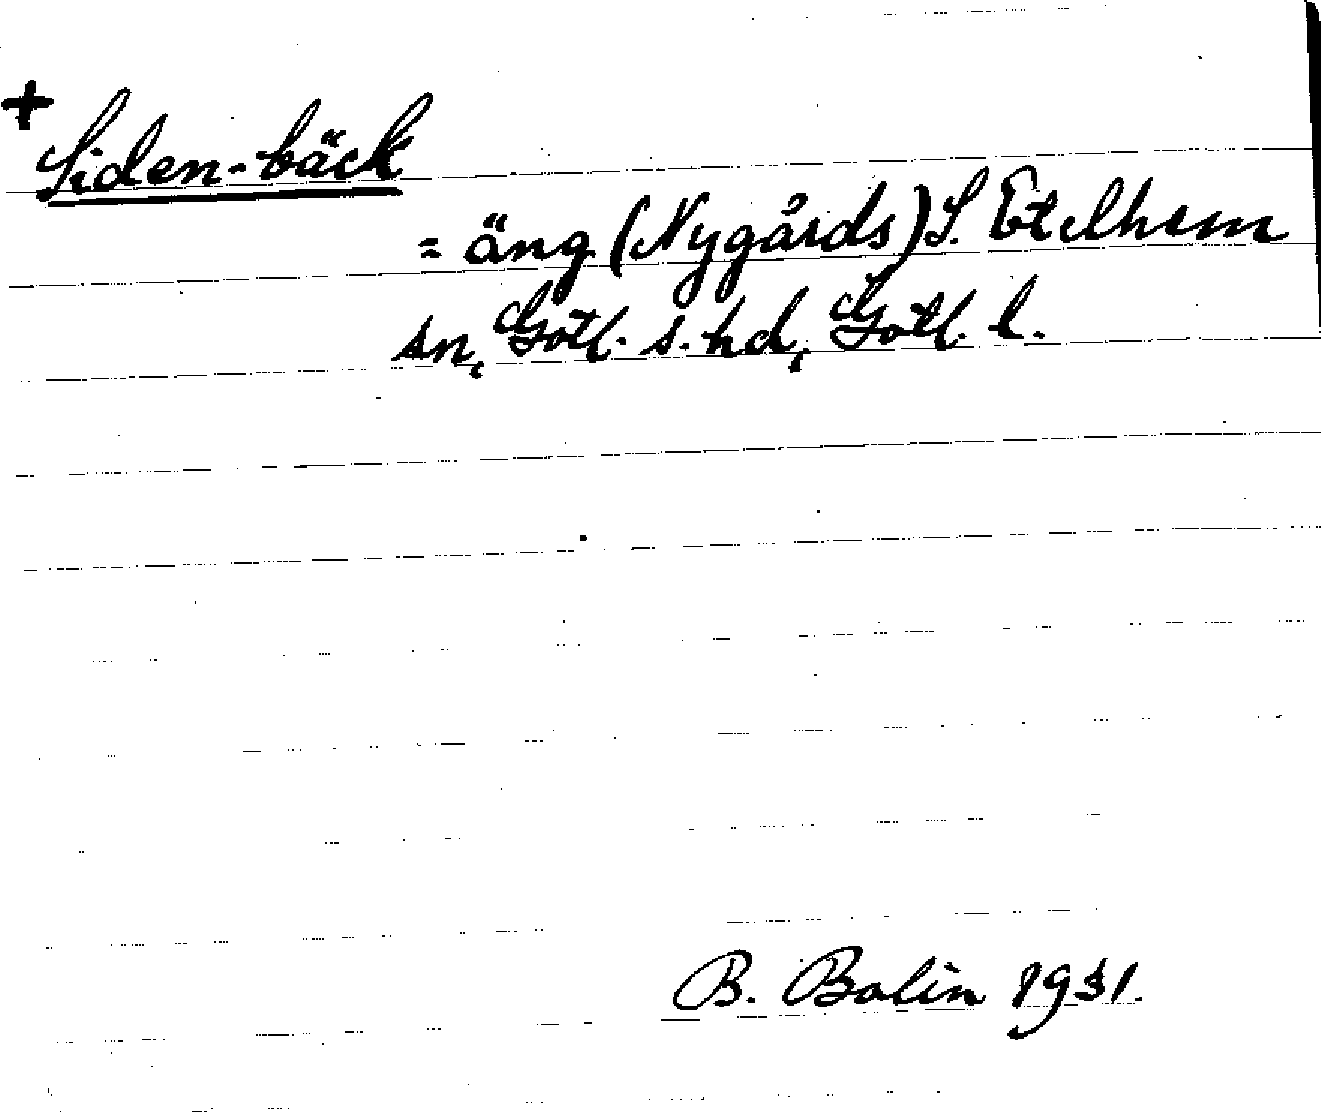 +
Siden-bäck
= äng (Nygårds) S. Etelhem
sn, Gotl. s. hd, Gotl. l.
B. Bolin 1931.